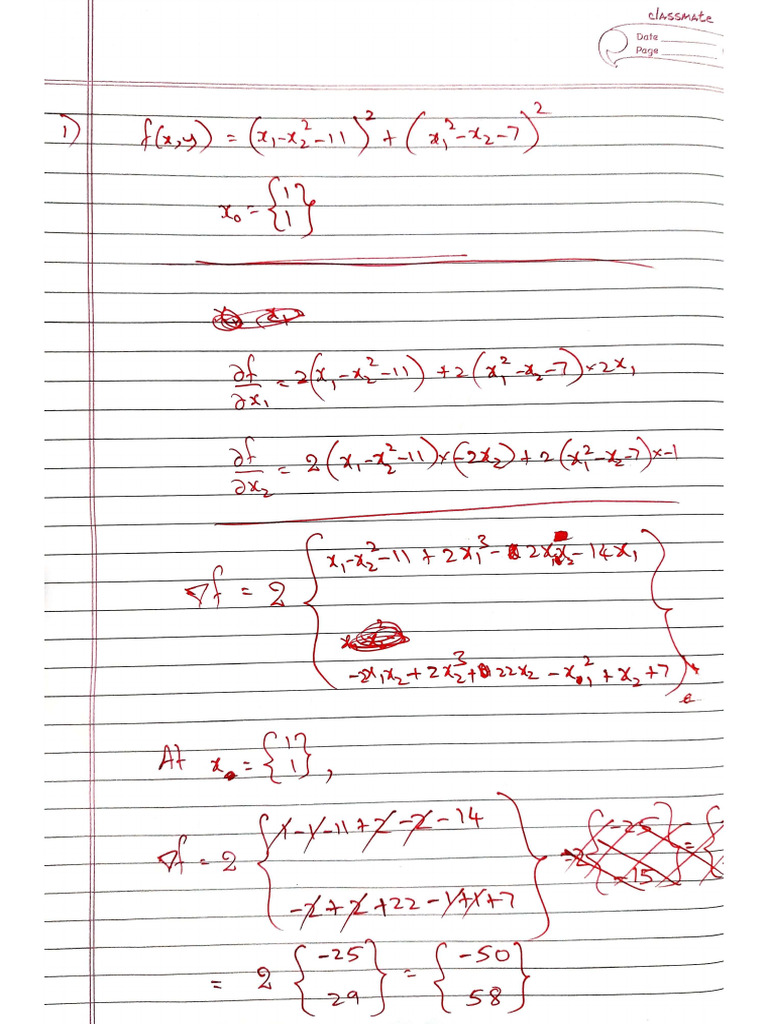 classmate
Date
Page
1) f(x,y) = (x₁-x₂²-11)² + (x₁²-x₂-7)²
x₀ = {1
1}
∂f/∂x₁ = 2(x₁-x₂²-11) + 2(x₁²-x₂-7)×2x₁
∂f/∂x₂ = 2(x₁-x₂²-11)×(-2x₂) + 2(x₁²-x₂-7)×-1
∇f = 2 {x₁-x₂²-11+2x₁³-2x₁x₂-14x₁
-2x₁x₂+2x₂³+22x₂-x₁²+x₂+7}
At x₀ = {1
1},
∇f = 2 {1-1-11+2-2-14
-2+2+22-1+1+7}
= 2 {-25
29} = {-50
58}